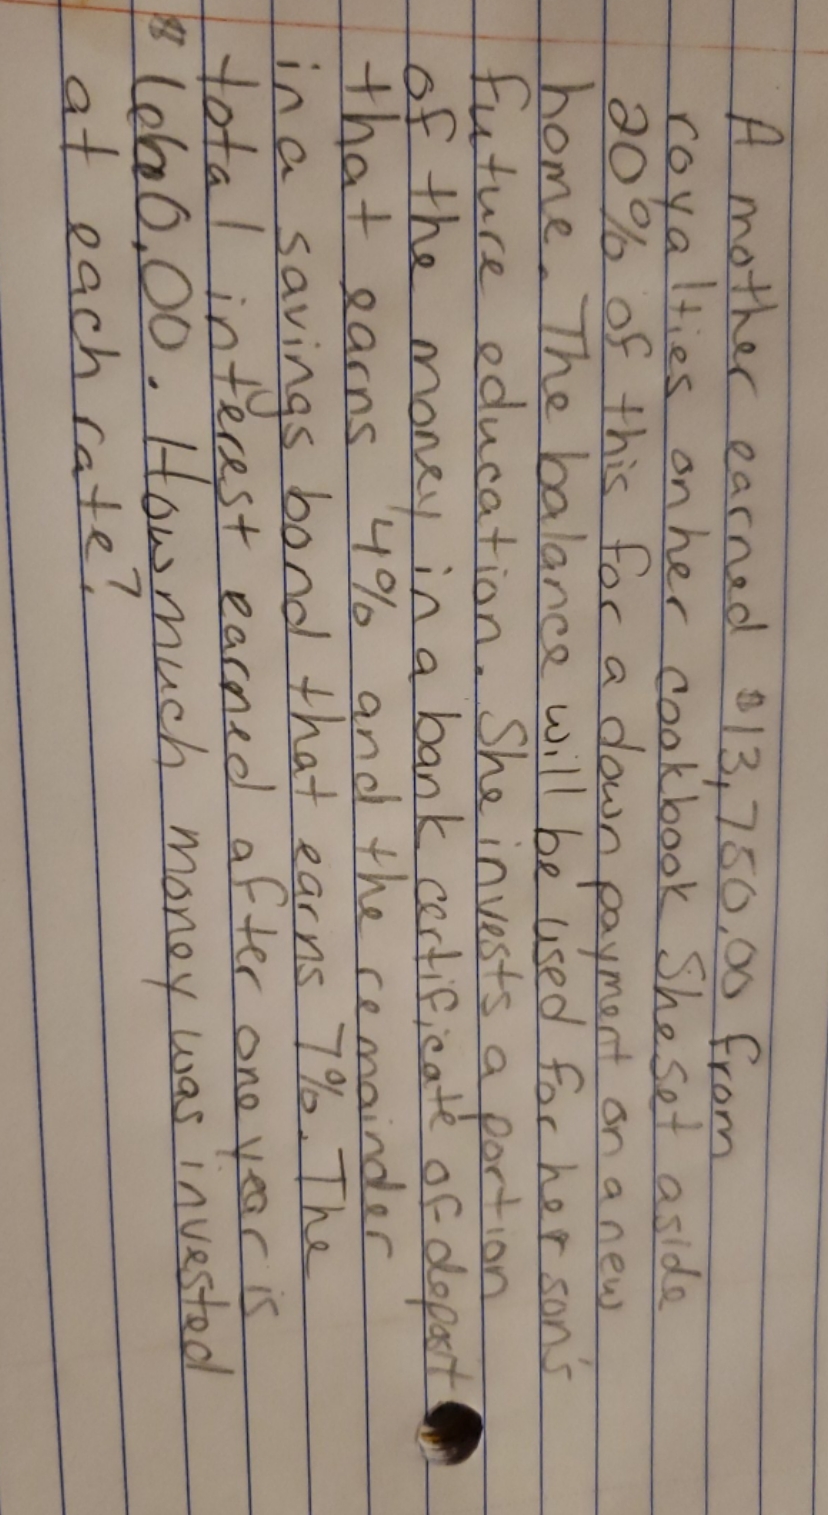 A mother earned $13,750.00 from
royalties on her cookbook She set aside
20% of this for a down payment on a new
home. The balance will be used for her son's
future education. She invests a portion
of the money in a bank certificate of deposit
that earns 4% and the remainder
in a savings bond that earns 7%. The
total interest earned after one year is
$660.00. How much money was invested
at each rate?